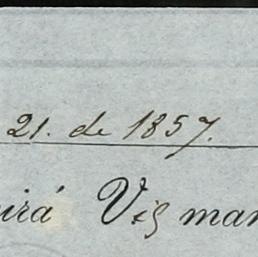 21. de 1857.
irá Vig man